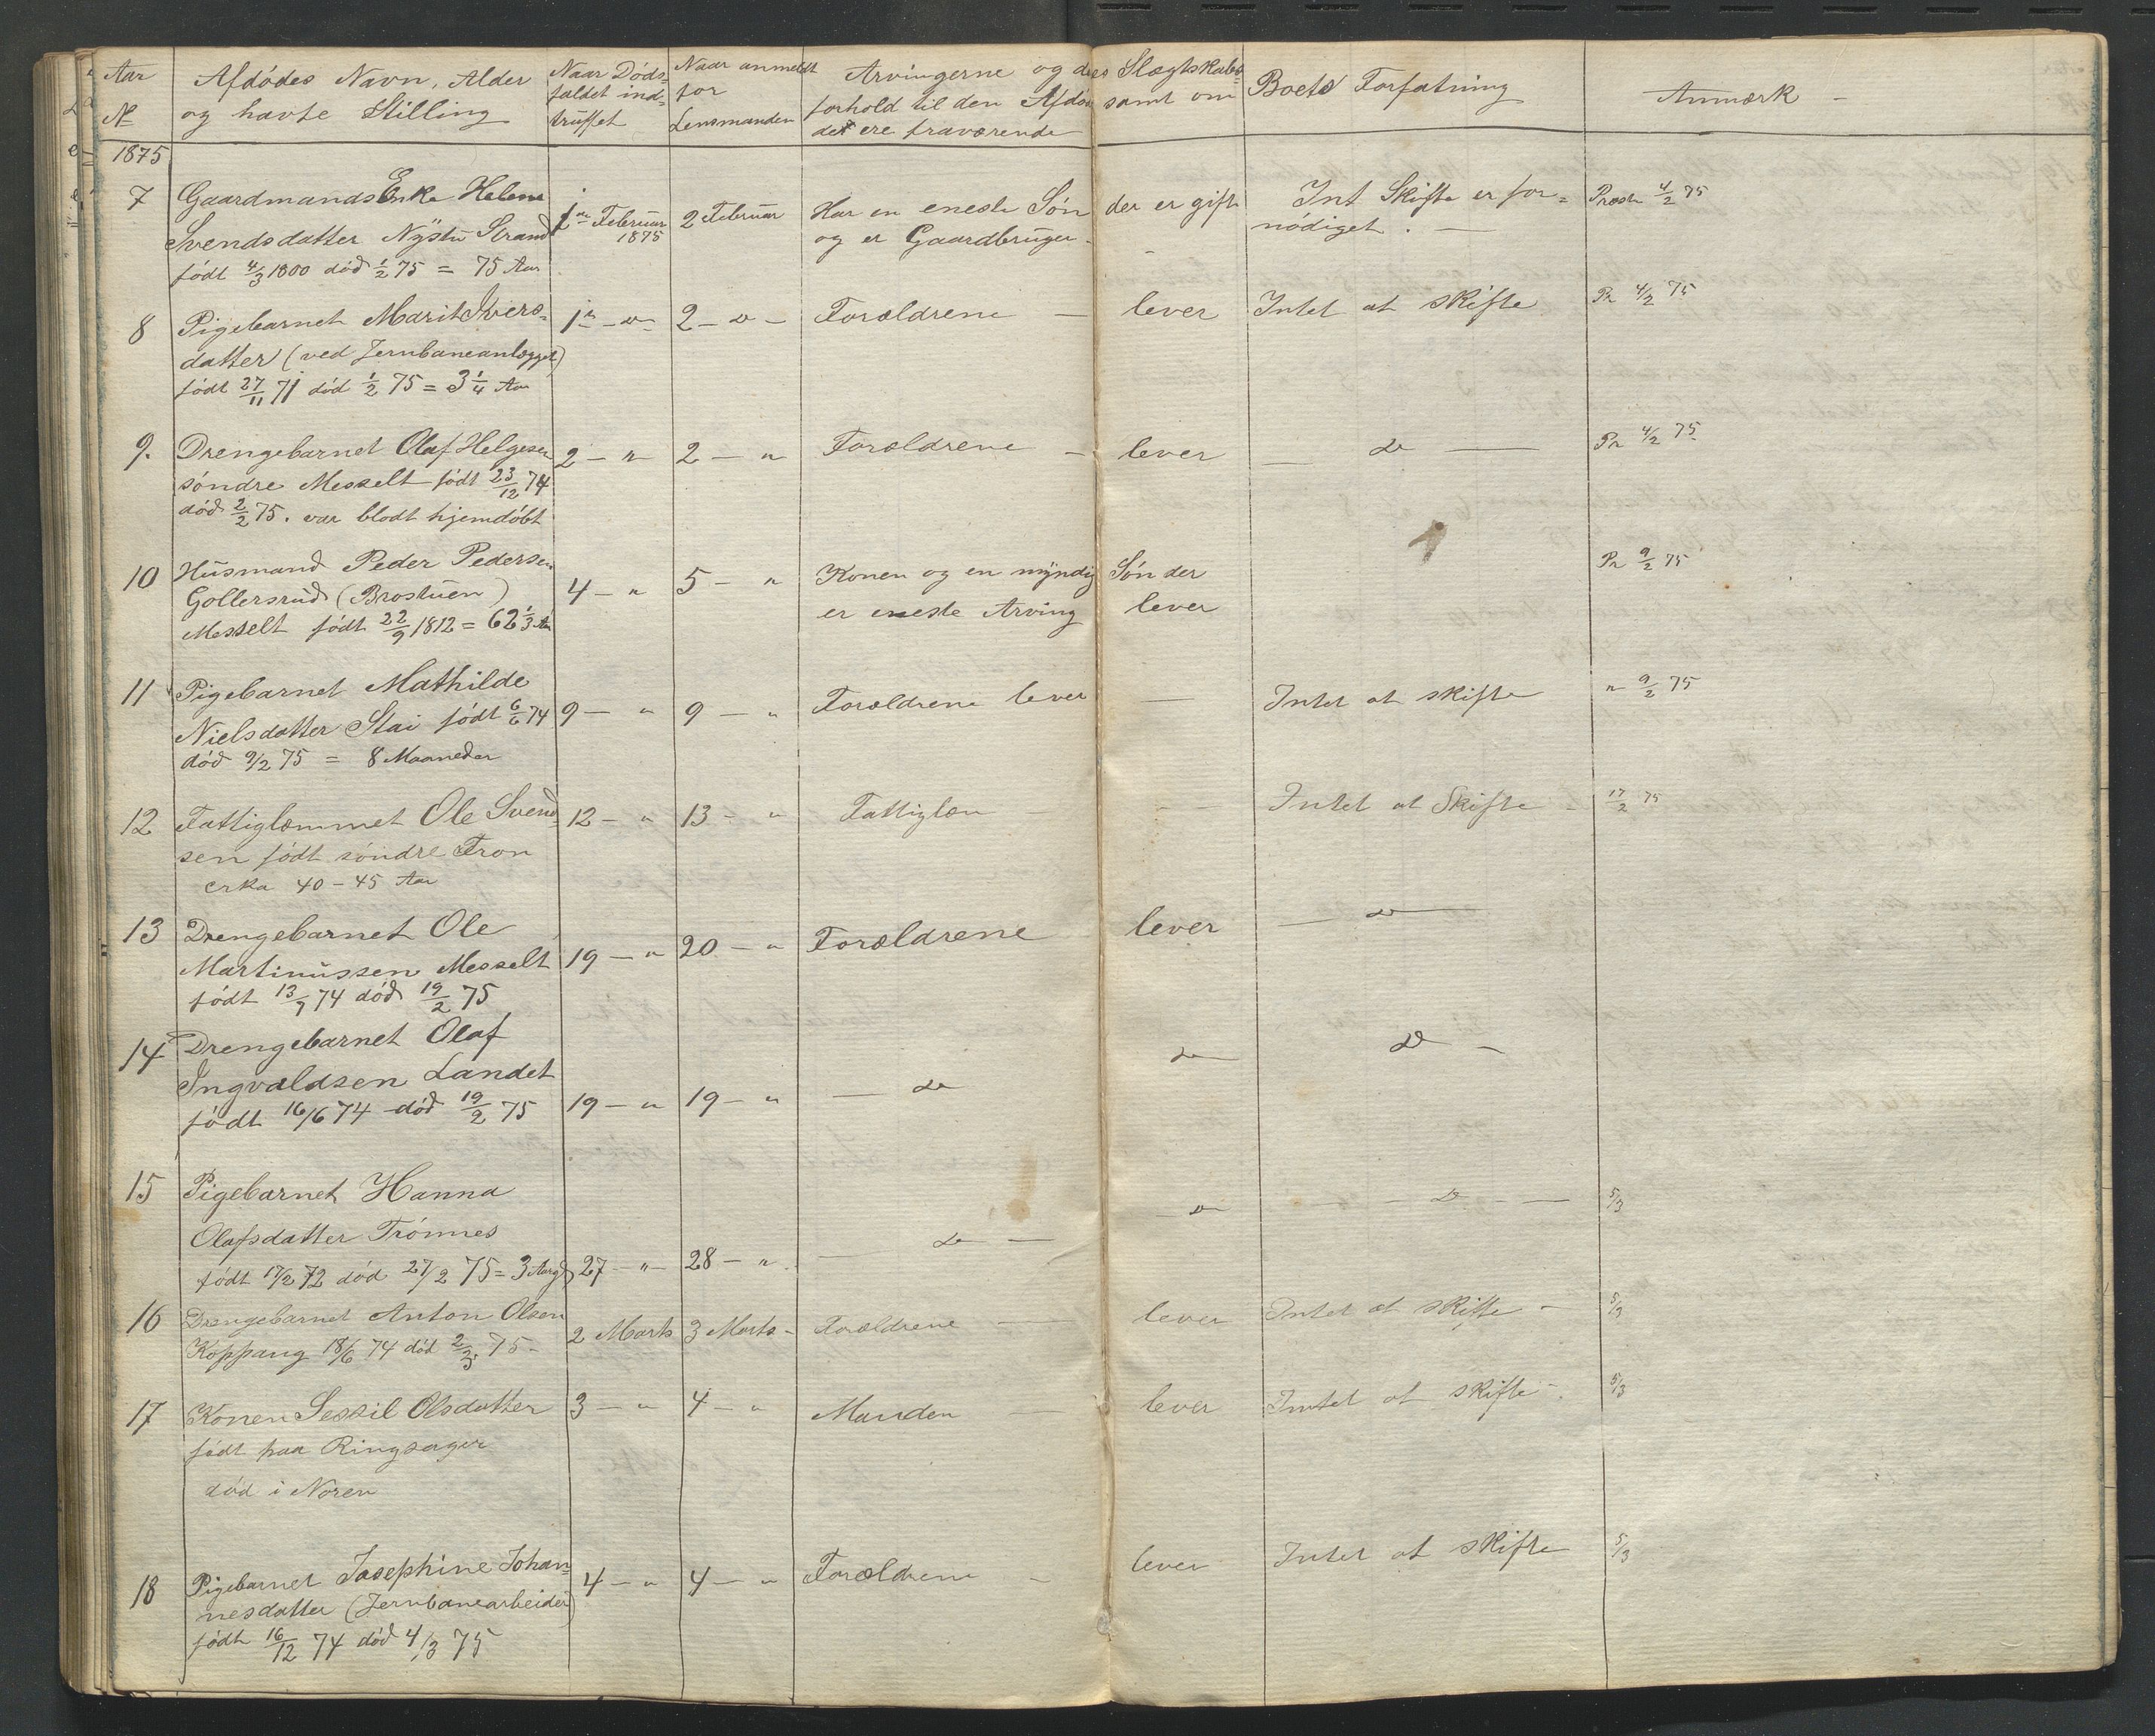 Aar
No
Afdödes Navn, Alder
og havte Stilling
Naar Döds=
faldet ind=
truffet
Naar anmeldt
for
Lensmanden
Arvingerne og deres Slægtskabs=
forhold til den Afdöde samt om
der ere fraværende
Boets Forfatning
Anmærk -
1875
7 Gaardmands Enke Helene
Svendsdatter Nystu Strand
födt 4/3 1800 död 1/2 75 = 75 Aar
1ste Februar
1875
2 Februar
Har en eneste Sön der er gift
og er Gaardbruger -
Int Skifte er for=
nödiget . —
Præste 4/2 75
8 Pigebarnet Marit Ivers=
datter (ved Jernbaneanlægget)
födt 27/11 71 död 1/2 75 = 3 1/4 Aar
1ste - do -
2 - do -
Forældrene — lever
Intet at skifte
Pr 4/2 75
9. Drengebarnet Olaf Helgesen
söndre Messelt födt 23/12 74
död 2/2 75. var blodt hjemdöbt
2 — "
2 — "
Forældrene - lever
— do —
Pr 4/2 75
10 Husmand Peder Pedersen
Gollersrud (Brostuen)
Messelt födt 22/9 1812 = 62 1/3 Aar
4 — "
5 - "
Konen og en myndig Sön der
er eneste Arving lever
Pr 9/2 75
11 Pigebarnet Mathilde
Nielsdatter Stai födt 6/6 74
död 9/2 75 = 8 Maaneder
9 — "
9 — "
Forældrene lever —
Intet at skifte
" 9/2 75
12 Fattiglæmmet Ole Svend=
sen födt söndre Fron
crka 40 - 45 Aar
12 - "
13 - "
Fattiglæm
Intet at Skifte -
17/2 75
13 Drengebarnet Ole
Martinussen Messelt
födt 13/7 74 död 19/2 75
19 — "
20 - "
Forældrene lever
— do —
14 Drengebarnet Olaf
Ingvaldsen Landet
födt 16/6 74 död 19/2 75
19 — "
19 - "
— do
do —
do -
15 Pigebarnet Hanna
Olafsdatter Trönnes
födt 17/2 72 död 27/2 75 = 3 Aar gl
27 - "
28 - "
— do —
- do
— - do - —
5/3
16 Drengebarnet Anton Olsen
Koppang 18/6 74 död 2/3 75 -
2 Marts
3 Marts -
Forældrene — lever
Intet at skifte -
5/3
17 Konen Sessil Olsdatter
födt paa Ringsager
död i Noren
3 — "
4 - "
Manden — lever
Intet at skifte -
5/3
18 Pigebarnet Josephine Johan=
nesdatter (Jernbanearbeider)
födt 16/12 74 död 4/3 75
4 — "
4 — "
Forældrene - lever
Intet at skifte
5/3